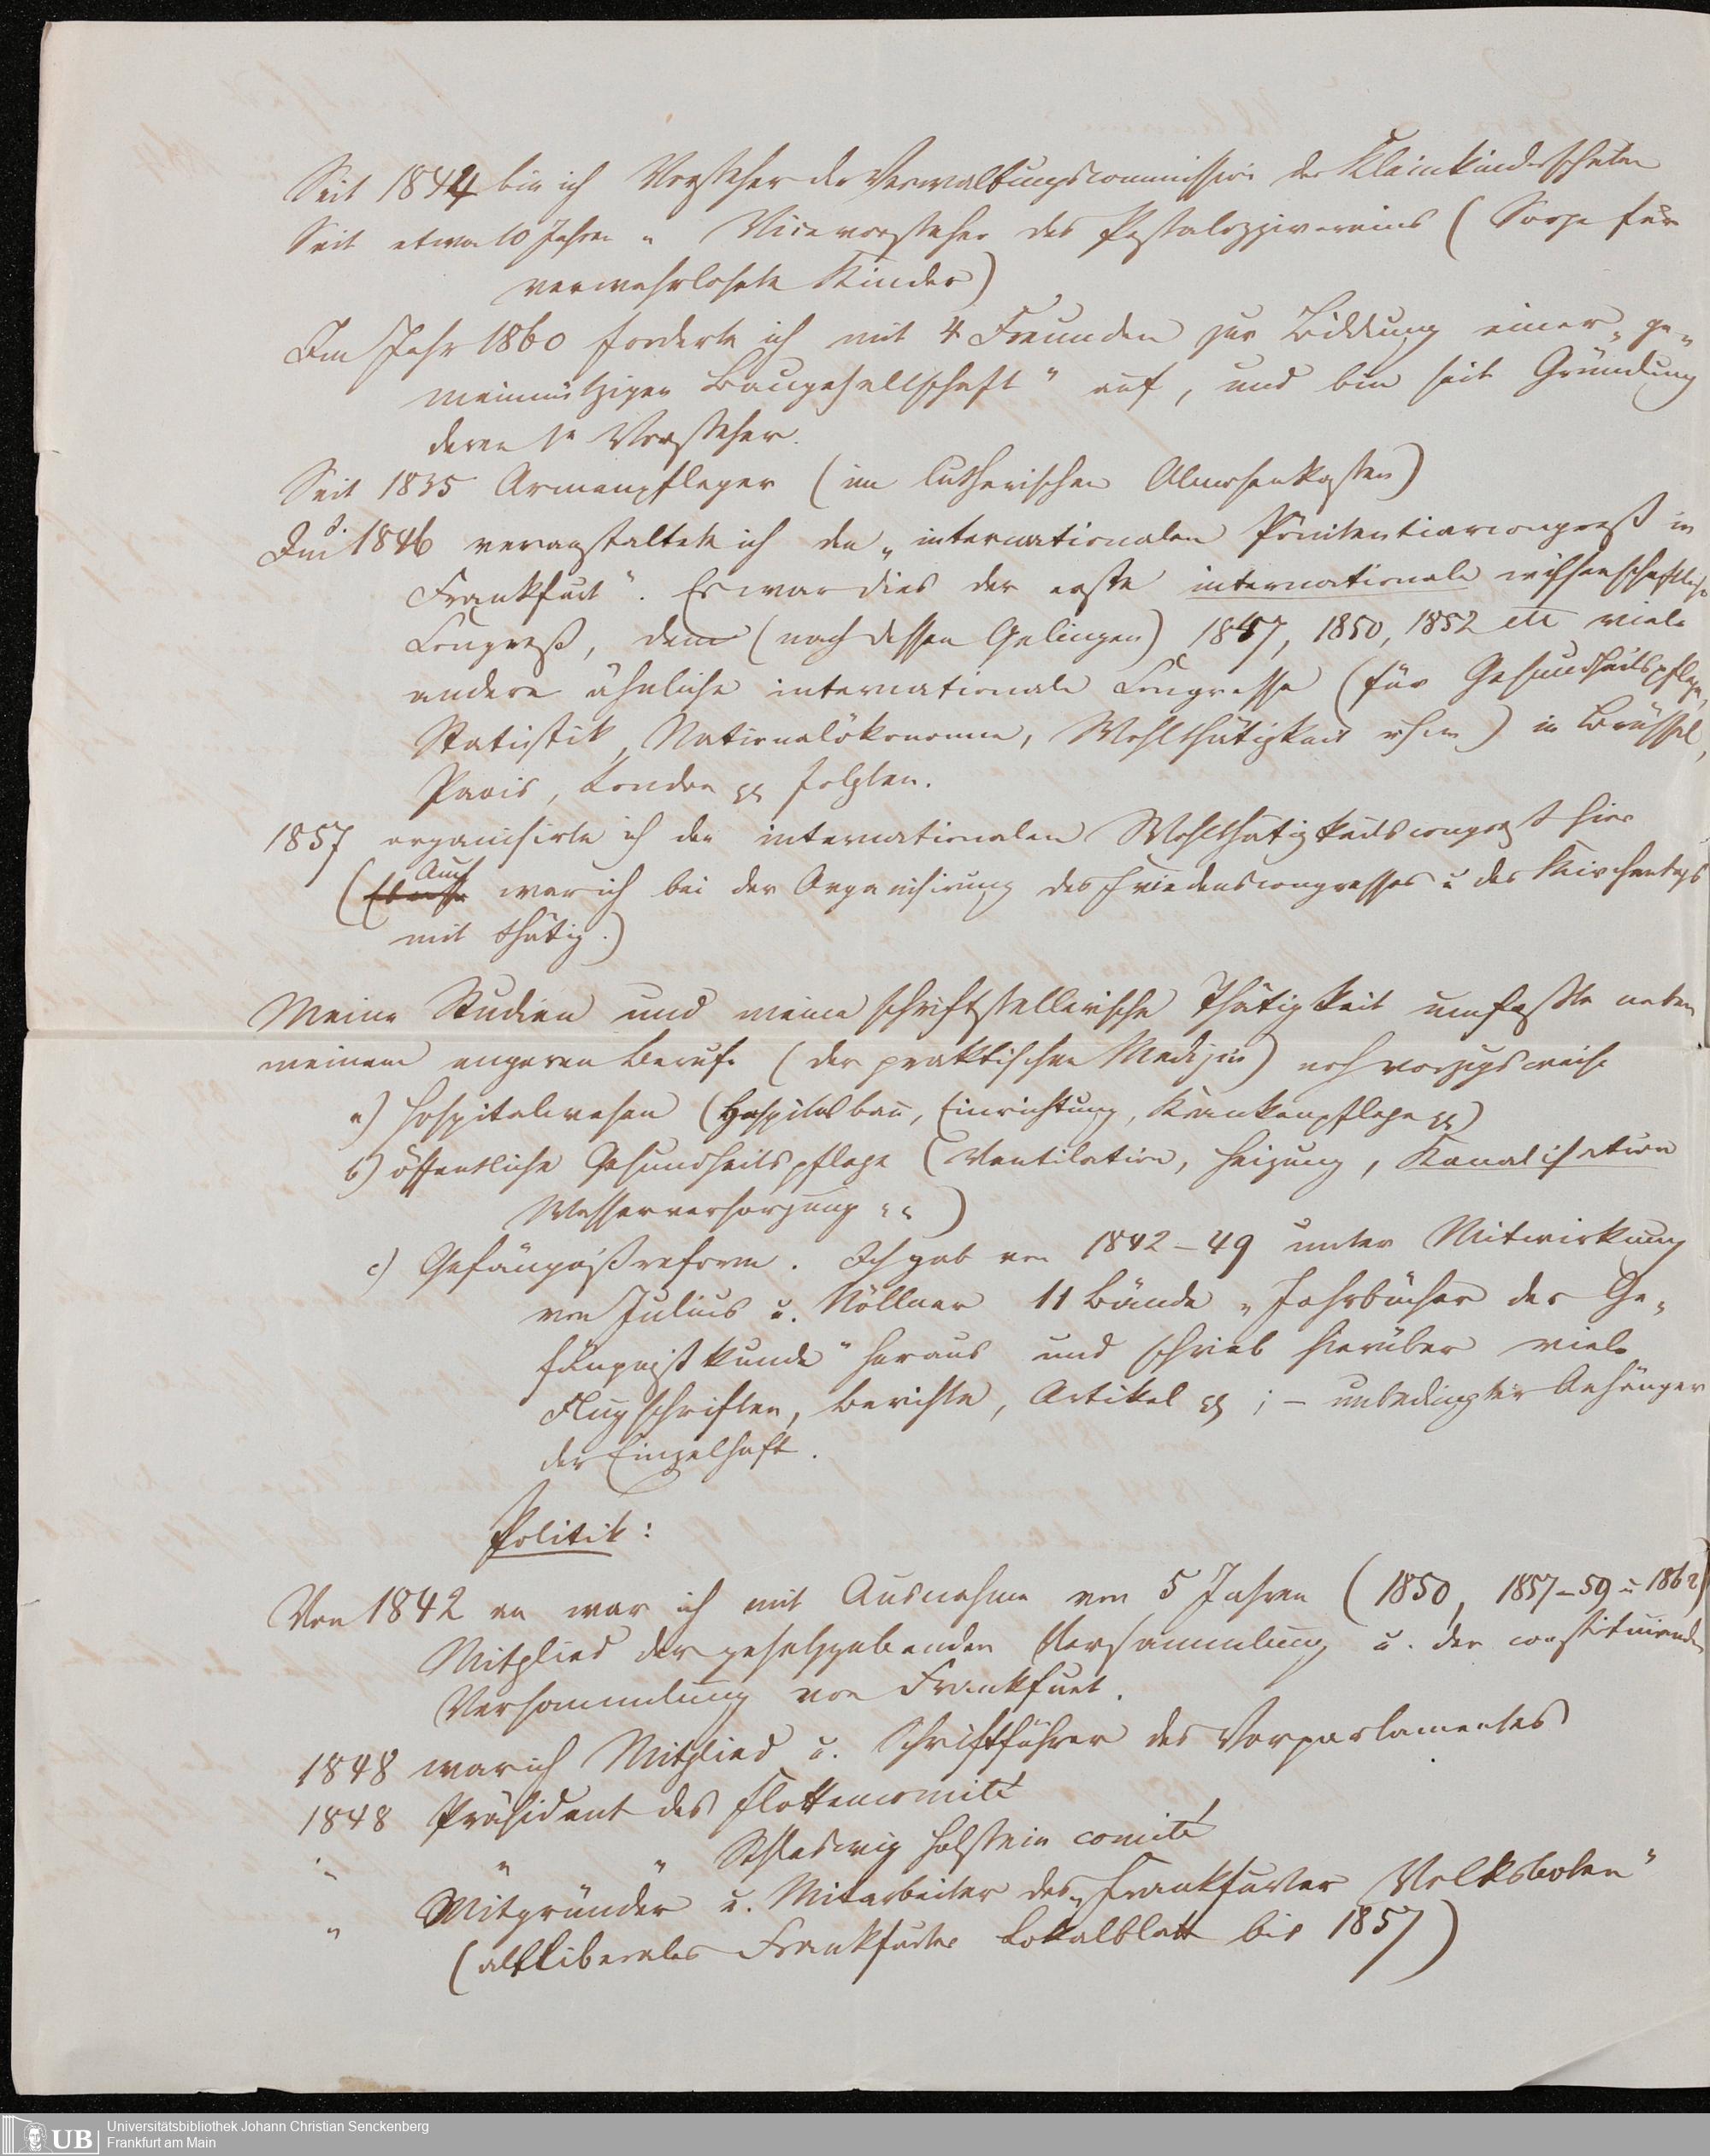 Seit 1844 bin ich Vorsteher der Verwaltungscommission der Kleinkinderschulen
Seit etwa 10 Jahren " Vicevorsteher des Pestalozzivereins (Sorge für
verwahrloste Kinder)
Im Jahr 1860 forderte ich mit 4 Freunden zur Bildung einer „ge-
meinnützigen Baugesellschaft" auf, und bin seit Gründung
deren 1r Vorsteher.
Seit 1835 Armenpfleger (im lutherischen Almosenkasten)
1846 veranstaltete ich den „internationalen Pönitentiarcongreß in
Frankfurt". Es war dies der erste internationale wissenschaftliche
Congreß, dem (nach dessen Gelingen) 1847, 1850, 1852 etc viele
andere ähnliche internationale Congresse (für Gesundheitspflege,
Statistik, Nationalökonomie, Wohlthätigkeit usw) in Brüssel,
Paris, London etc folgten.
1857 organisirte ich den internationalen Wohlthätigkeitscongreß hier
(Ebenso Auch war ich bei der Organisirung des Friedenscongresses u des Kirchentags
mit thätig.)
Meine Studien und meine schriftstellerische Thätigkeit umfaßte neben
meinem engeren Berufe (der praktischen Medizin) noch vorzugsweise
a) Hospitalwesen (Hospitalbau, Einrichtung, Krankenpflege etc)
b) öffentliche Gesundheitspflege (Ventilation, Heizung, Kanalisation
Wasserversorgung etc)
c) Gefängnißreform. Ich gab von 1842–49 unter Mitwirkung
von Julius u. Nöllner 11 Bände „Jahrbücher der Ge-
fängnißkunde" heraus und schrieb hierüber viele
Flugschriften, Berichte, Artikel etc; – unbedingter Anhänger
der Einzelhaft.
Politik:
Von 1842 an war ich mit Ausnahme von 5 Jahren (1850, 1857–59 u 1862)
Mitglied der gesetzgebenden Versammlung u. der constituirenden
Versammlung von Frankfurt.
1848 war ich Mitglied u. Schriftführer des Vorparlamentes
1848 Präsident des Flottencomité
" " " Schleswig Holstein comité
" Mitgründer u. Mitarbeiter des „Frankfurter Volksboten"
(altliberales Frankfurter Lokalblatt bis 1857)
UB
Universitätsbibliothek Johann Christian Senckenberg
Frankfurt am Main